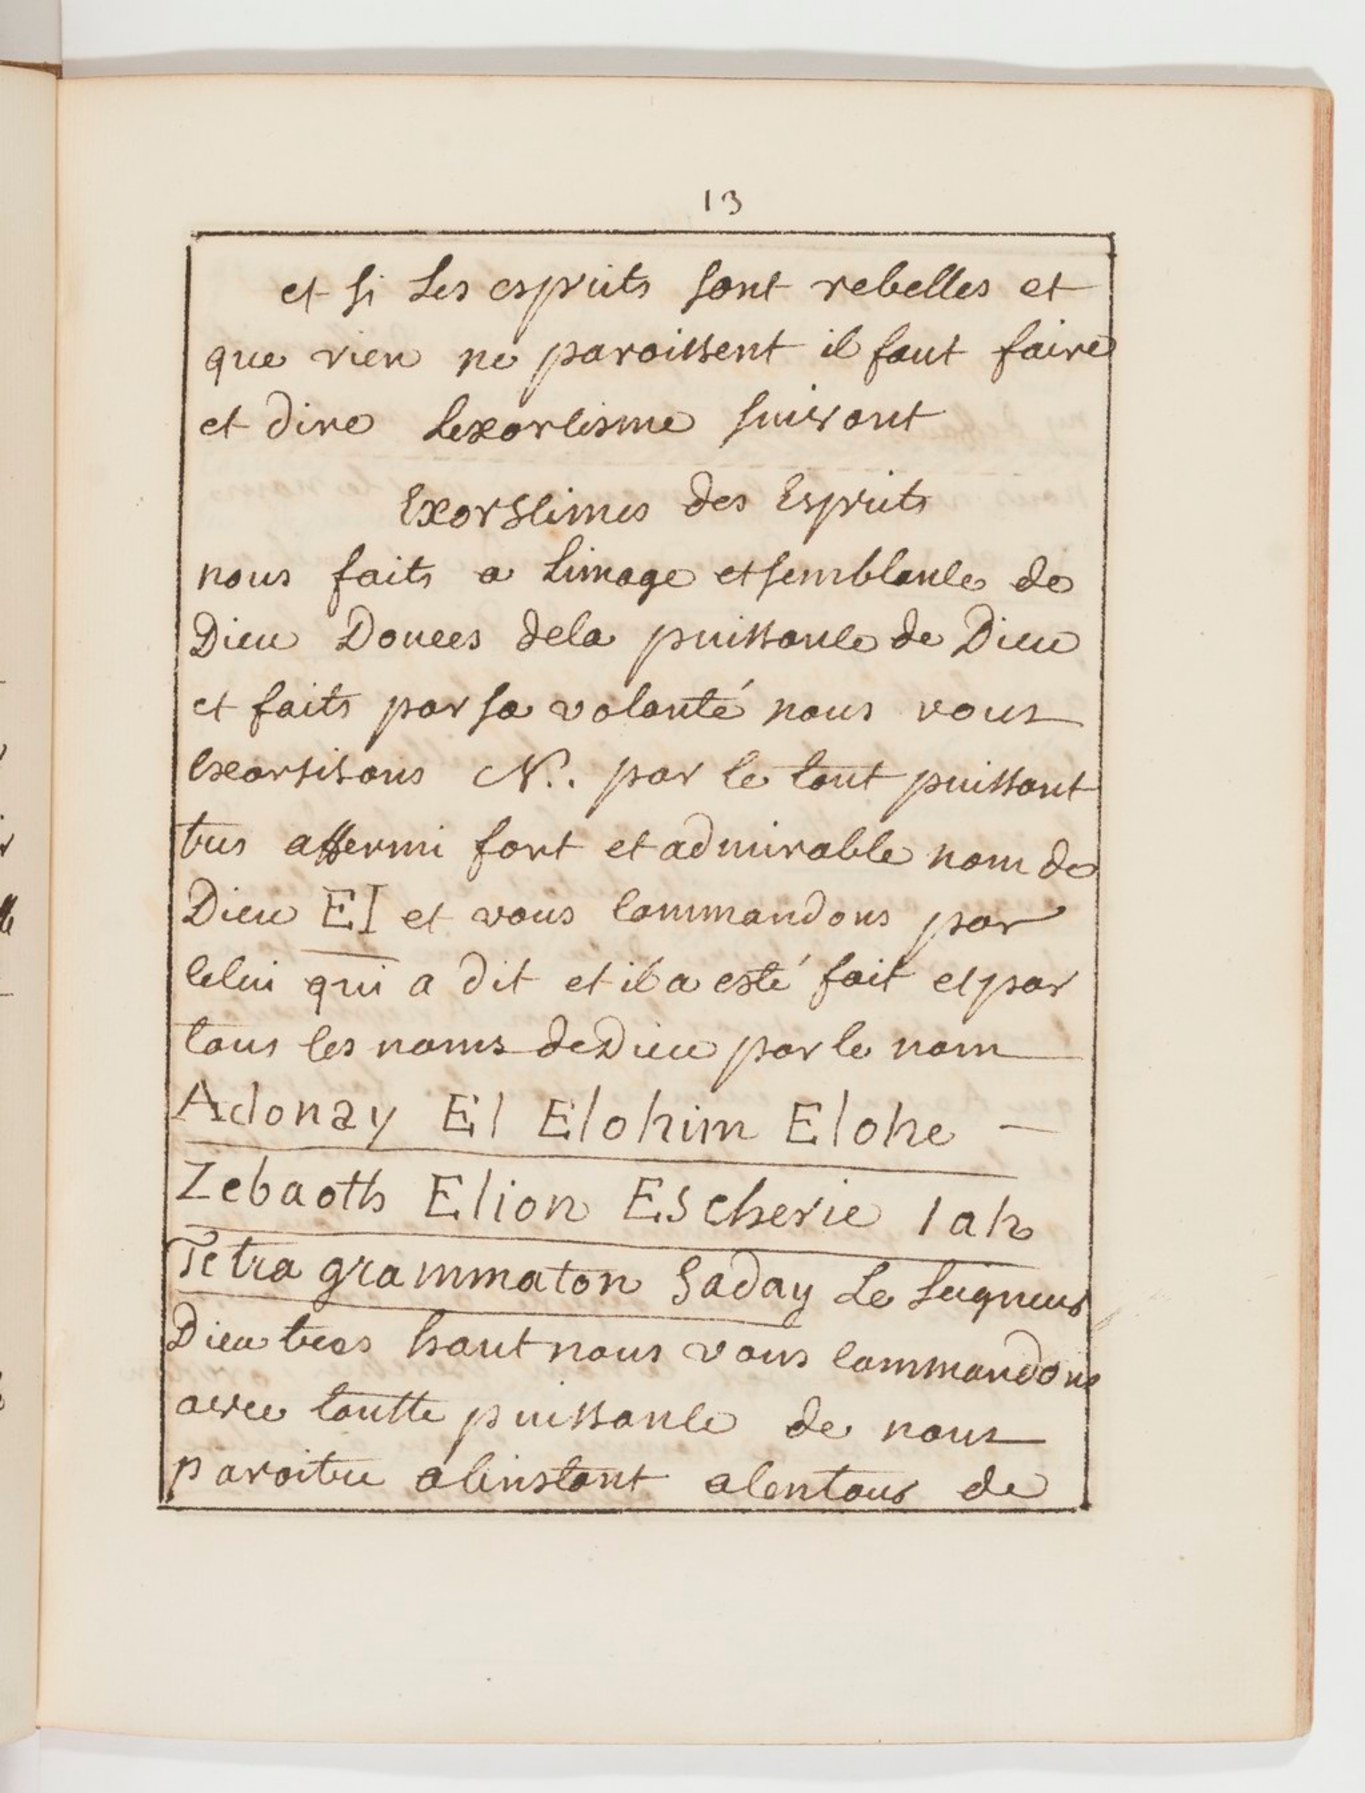 13
et si Les esprits sont rebelles et
que rien ne paroissent il faut faire
et dire Lexorcisme suivant
Exorscimes des Esprits
nous faits a Limage et semblance de
Dieu Douees dela puissance de Dieu
et faits par sa volonté nous vous
exorsisons N.. par le tout puissant
tres affermi fort et admirable nom de
Dieu EI et vous commandons par
celui qui a dit et il a esté fait et par
tous les noms de Dieu par le nom
Adonay El Elohim Elohe —
Zebaoth Elion Escherie Iah
Tetra grammaton Saday Le Seigneur
Dieu tres haut nous vous commandons
avec toutte puissance de nous
paroitre alinstant alentour de